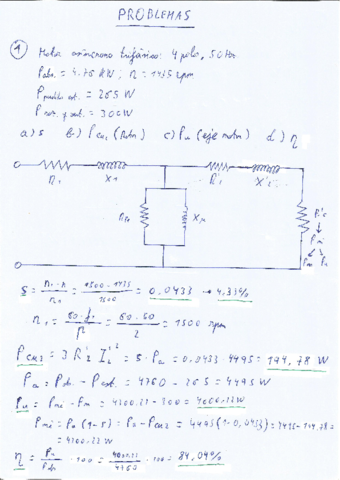 PROBLEMAS
1 Motor asíncrono trifásico: 4 polos, 50 Hz
Pabs. = 4.76 KW; n = 1435 rpm
Ppérdidas est. = 265 W
Proz. y vent. = 300 W
a) s b) Pcu2 (Rotor) c) Pu (eje motor) d) η
R1 X1 R'2 X'2
RFe Xμ R'c
Pmi
Pm Pu
S = n1 - n / n1 = 1500 - 1435 / 1500 = 0,0433 → 4,33%
n1 = 60 · f1 / p = 60 · 50 / 2 = 1500 rpm
Pcu2 = 3 R'2 I'2² = s · Pa = 0,0433 · 4495 = 194,78 W
Pa = Pab. - Pest. = 4760 - 265 = 4495 W
Pu = Pmi - Pm = 4300.22 - 300 = 4000.22 W
Pmi = Pa (1-s) = Pa - Pcu2 = 4495 (1 - 0,0433) = 4495 - 194,78 =
= 4300.22 W
η = Pu / Pab · 100 = 4000.22 / 4760 · 100 = 84,04%